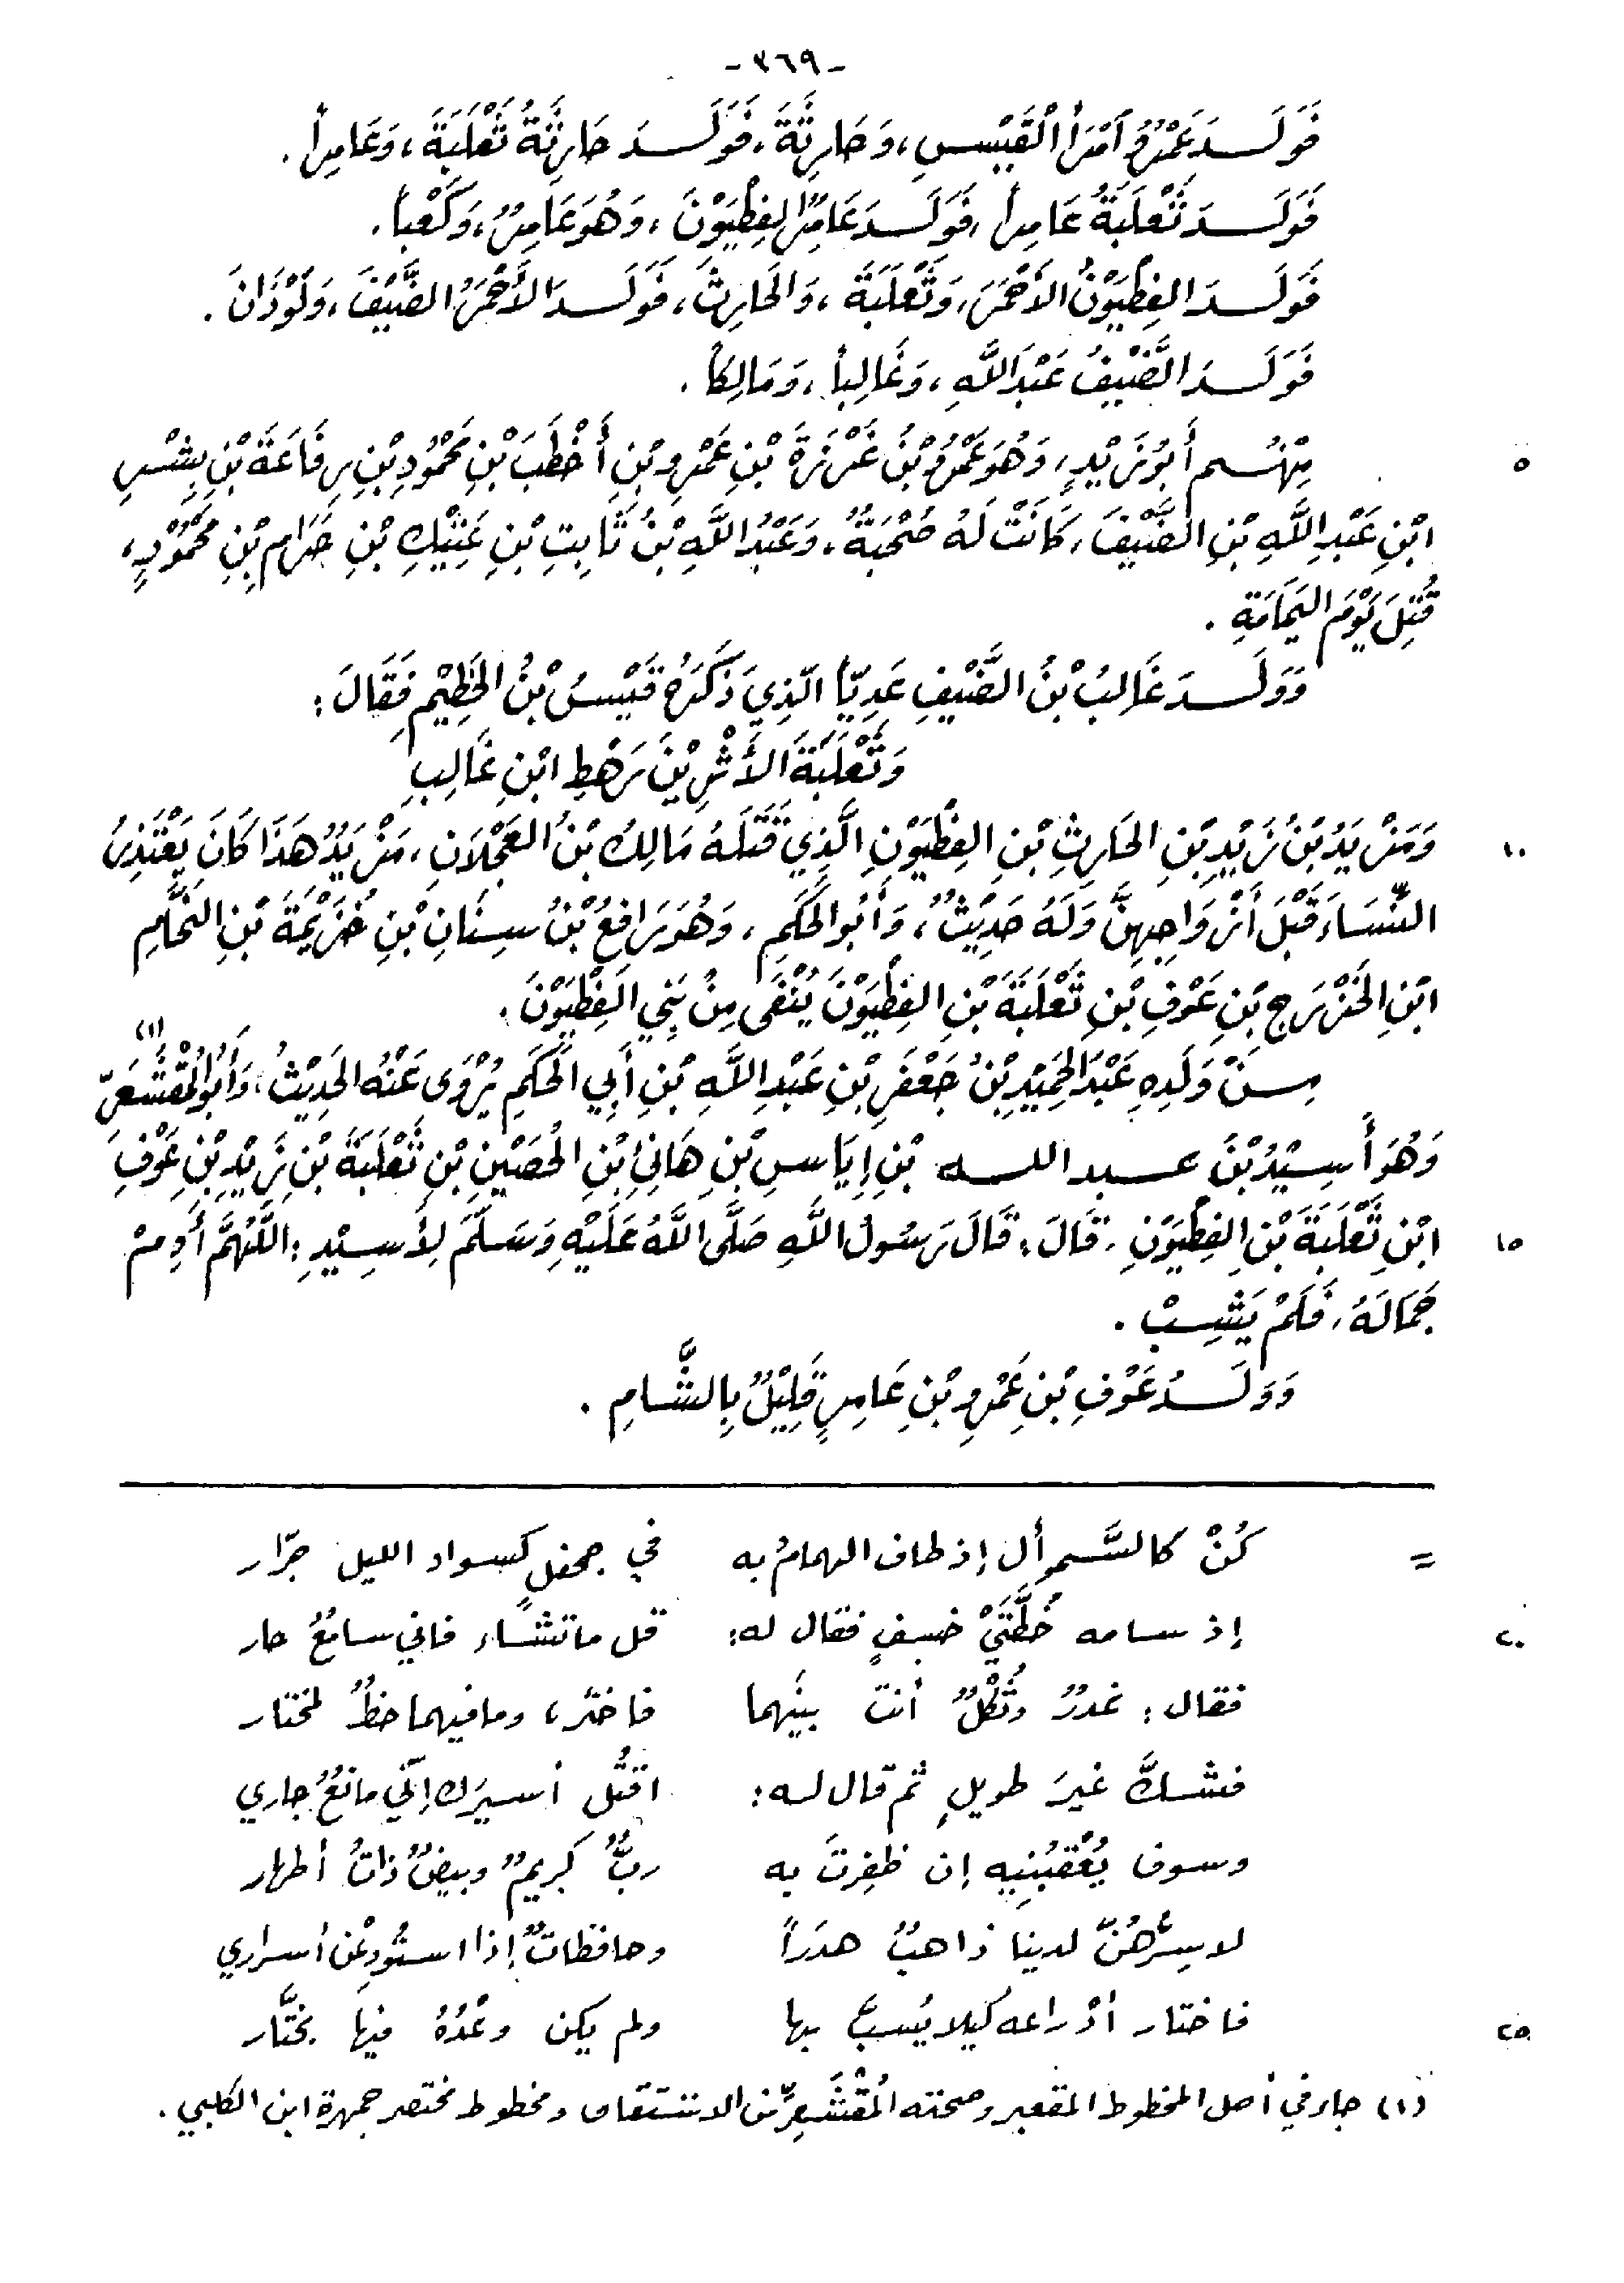 -٣٦٩-
فَوَلَدَ عَمْرٌو اَمْرَأَ القَيْسِ، وَحَارِثَةَ، فَوَلَدَ حَارِثَةُ ثَعْلَبَةَ، وَعَامِراً.
فَوَلَدَ ثَعْلَبَةُ عَامِراً، فَوَلَدَ عَامِرٌ الفِطْيَوْنَ، وَهُوَ عَامِرٌ، وَكَعْباً.
فَوَلَدَ الفِطْيَوْنُ الأَحْمَرَ، وَثَعْلَبَةَ، وَالحَارِثَ، فَوَلَدَ الأَحْمَرُ الضَّيْفَ، وَلَوْذَانَ.
فَوَلَدَ الضَّيْفُ عَبْدَ اللَّهِ، وَغَالِباً، وَمَالِكاً.
مِنْهُم أَبُو زَيْدٍ، وَهُوَ عَمْرُو بْنُ عَزْرَةَ بْنِ عَمْرِو بْنِ أَخْطَبَ بْنِ مَحْمُودِ بْنِ رِفَاعَةَ بْنِ بِشْرِ
٥
ابْنِ عَبْدِ اللَّهِ بْنِ الضَّيْفَ، كَانَتْ لَهُ صُحْبَةٌ، وَعَبْدُ اللَّهِ بْنُ ثَابِتِ بْنِ عَتِيْكِ بْنِ حَرَامِ بْنِ مَحْمُوْدٍ،
قُتِلَ يَوْمَ اليَمَامَةِ.
وَوَلَدَ غَالِبُ بْنُ الضَّيْفِ عَدِيّاً الَّذِي ذَكَرَهُ قَيْسُ بْنُ الخَطِيْمِ فَقَالَ:
وَثَعْلَبَةَ الأَثْرِيْنَ رَهْطِ ابْنِ غَالِبِ
وَمَزْيَدُ بْنُ زَيْدِ بْنِ الحَارِثِ بْنِ الفِطْيَوْنِ الَّذِي قَتَلَهُ مَالِكُ بْنُ العَجْلَانِ، مَزْيَدٌ هَذَا كَانَ يَعْتَذِرُ
١٠
النِّسَاءَ قَبْلَ أَزْوَاجِهِنَّ وَلَهُ حَدِيْثٌ، وَأَبُو الحَكَمِ، وَهُوَ رَافِعُ بْنُ سِنَانِ بْنِ خُزَيْمَةَ بْنِ النَّحَّامِ
ابْنِ الخَزْرَجِ بْنِ عَوْفِ بْنِ ثَعْلَبَةَ بْنِ الفِطْيَوْنَ يُنْفَى مِنْ بَنِي الفِطْيَوْنَ.
مِنْ وَلَدِهِ عَبْدُ الحَمِيْدِ بْنُ جَعْفَرِ بْنِ عَبْدِ اللَّهِ بْنِ أَبِي الحَكَمِ يُرْوَى عَنْهُ الحَدِيْثُ، وَأَبُو المُقْشَعِرِّ (١)
وَهُوَ أُسِيْدُ بْنُ عبد الله بْنِ إِيَاسِ بْنِ هَانِئِ بْنِ الحُصَيْنِ بْنِ ثَعْلَبَةَ بْنِ زَيْدِ بْنِ عَوْفِ
ابْنِ ثَعْلَبَةَ بْنِ الفِطْيَوْنِ، قَالَ: قَالَ رَسُولُ اللَّهِ صَلَّى اللَّهُ عَلَيْهِ وَسَلَّمَ لِأُسِيْدٍ: اللَّهُمَّ أَدِمْ
١٥
جَمَالَهُ، فَلَمْ يَشِبْ.
وَوَلَدُ عَوْفِ بْنِ عَمْرِو بْنِ عَامِرٍ قَلِيْلٌ بِالشَّامِ.
= كُنْ كالسَّموأل إذ طاف الهمامُ به في جحفلٍ كسواد الليل جرّار
إذ سامه خُطَّتَيْ خسفٍ فقال له: قل ما تشاء فإني سامعٌ حار
٢٠
فقال: غدرٌ وثُكْلٌ أنت بينهما فاختَر، وما فيهما حظٌ لمختار
فشكَّ غيرَ طويلٍ ثم قال له: اقتُل أسيرَك إنّي مانعٌ جاري
وسوف يُعْقِبُنِيه إن ظفِرتَ به ربٌّ كريمٌ وبيضٌ ذاتُ أطهار
لا سِرُّهُنّ لدينا ذاهبٌ هدَراً وحافظاتٌ إذا استُودِعْن أسراري
فاختار أدْراعه كيلا يُسبَّ بها ولم يكن وعْدُهُ فيها بختَّار
٢٥
(١) جاء في أصل المخطوط المقعبر وصحته المُقْشَعِرِّ من الاشتقاق ومخطوط مختصر جمهرة ابن الكلبي.